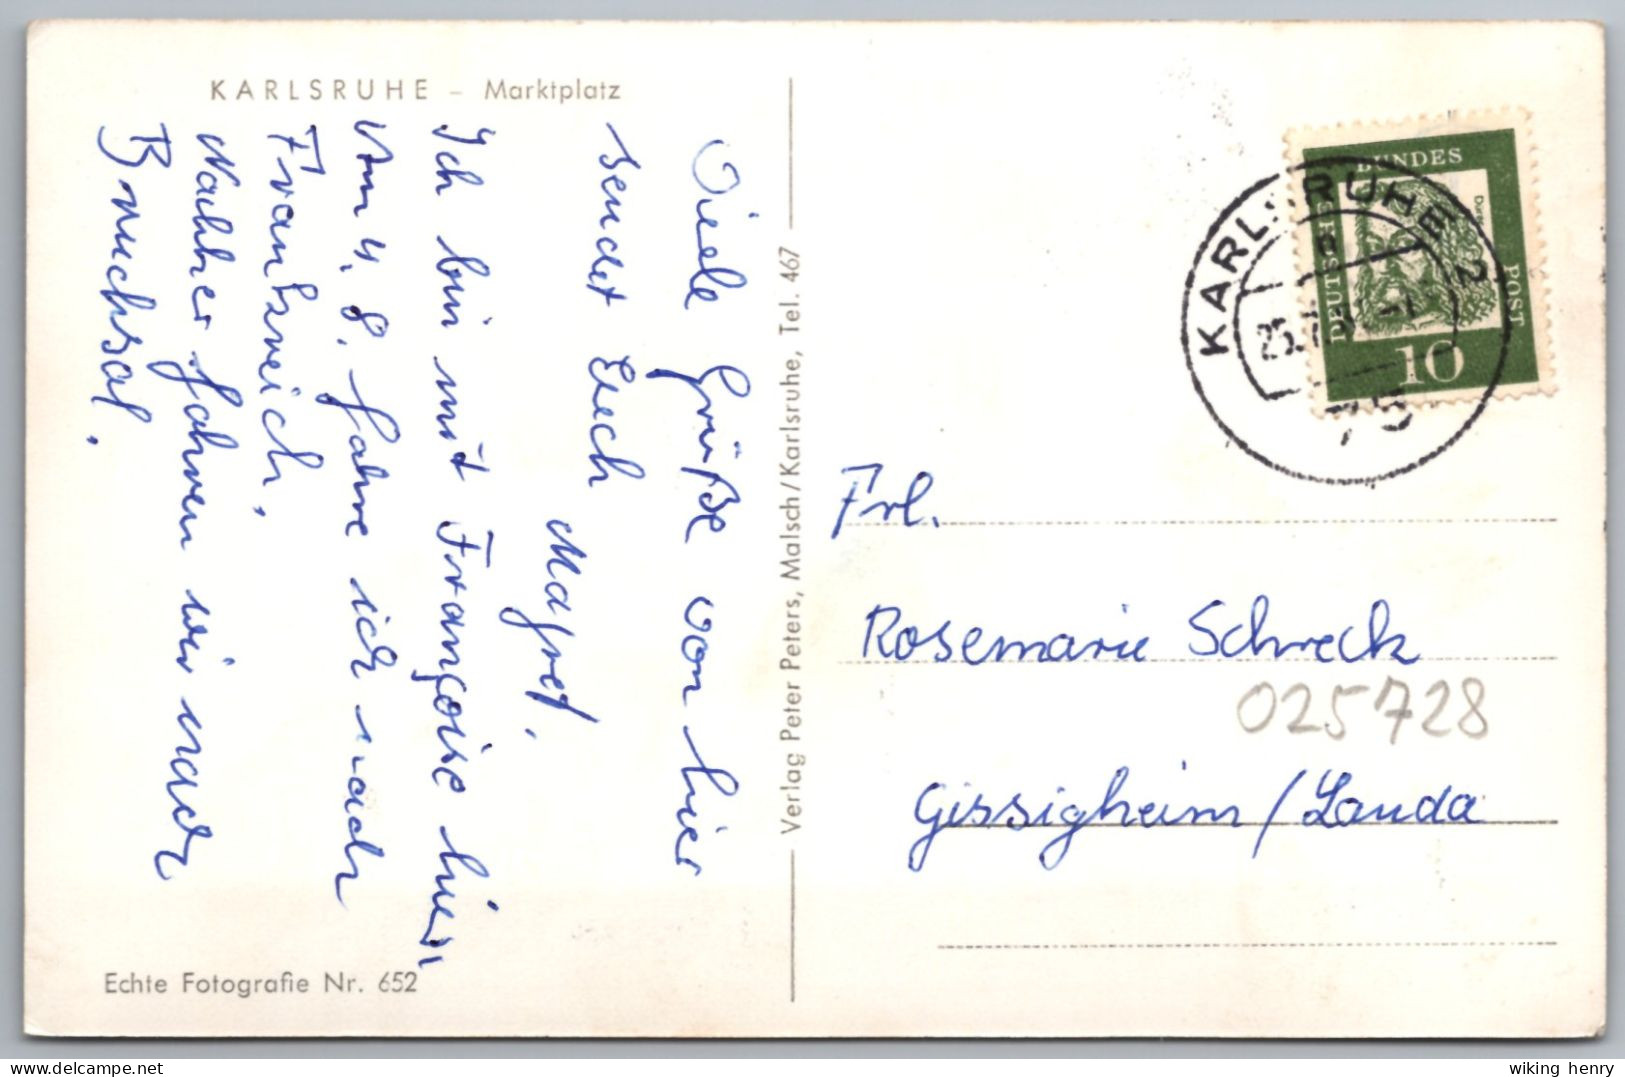 KARLSRUHE – Marktplatz
Viele Grüße von hier
sendet Euch
Magret.
Ich bin mit Françoise hier.
Am 4. 8. fahre ich nach
Frankreich.
Nachher fahren wir nach
Bruchsal.
Echte Fotografie Nr. 652
Verlag Peter Peters, Malsch/Karlsruhe, Tel. 467
KARLSRUHE 2
25.
75
DEUTSCHE BUNDES POST
10
Frl.
Rosemarie Schreck
025728
Gissigheim / Lauda
wiking henry
delcampe.net